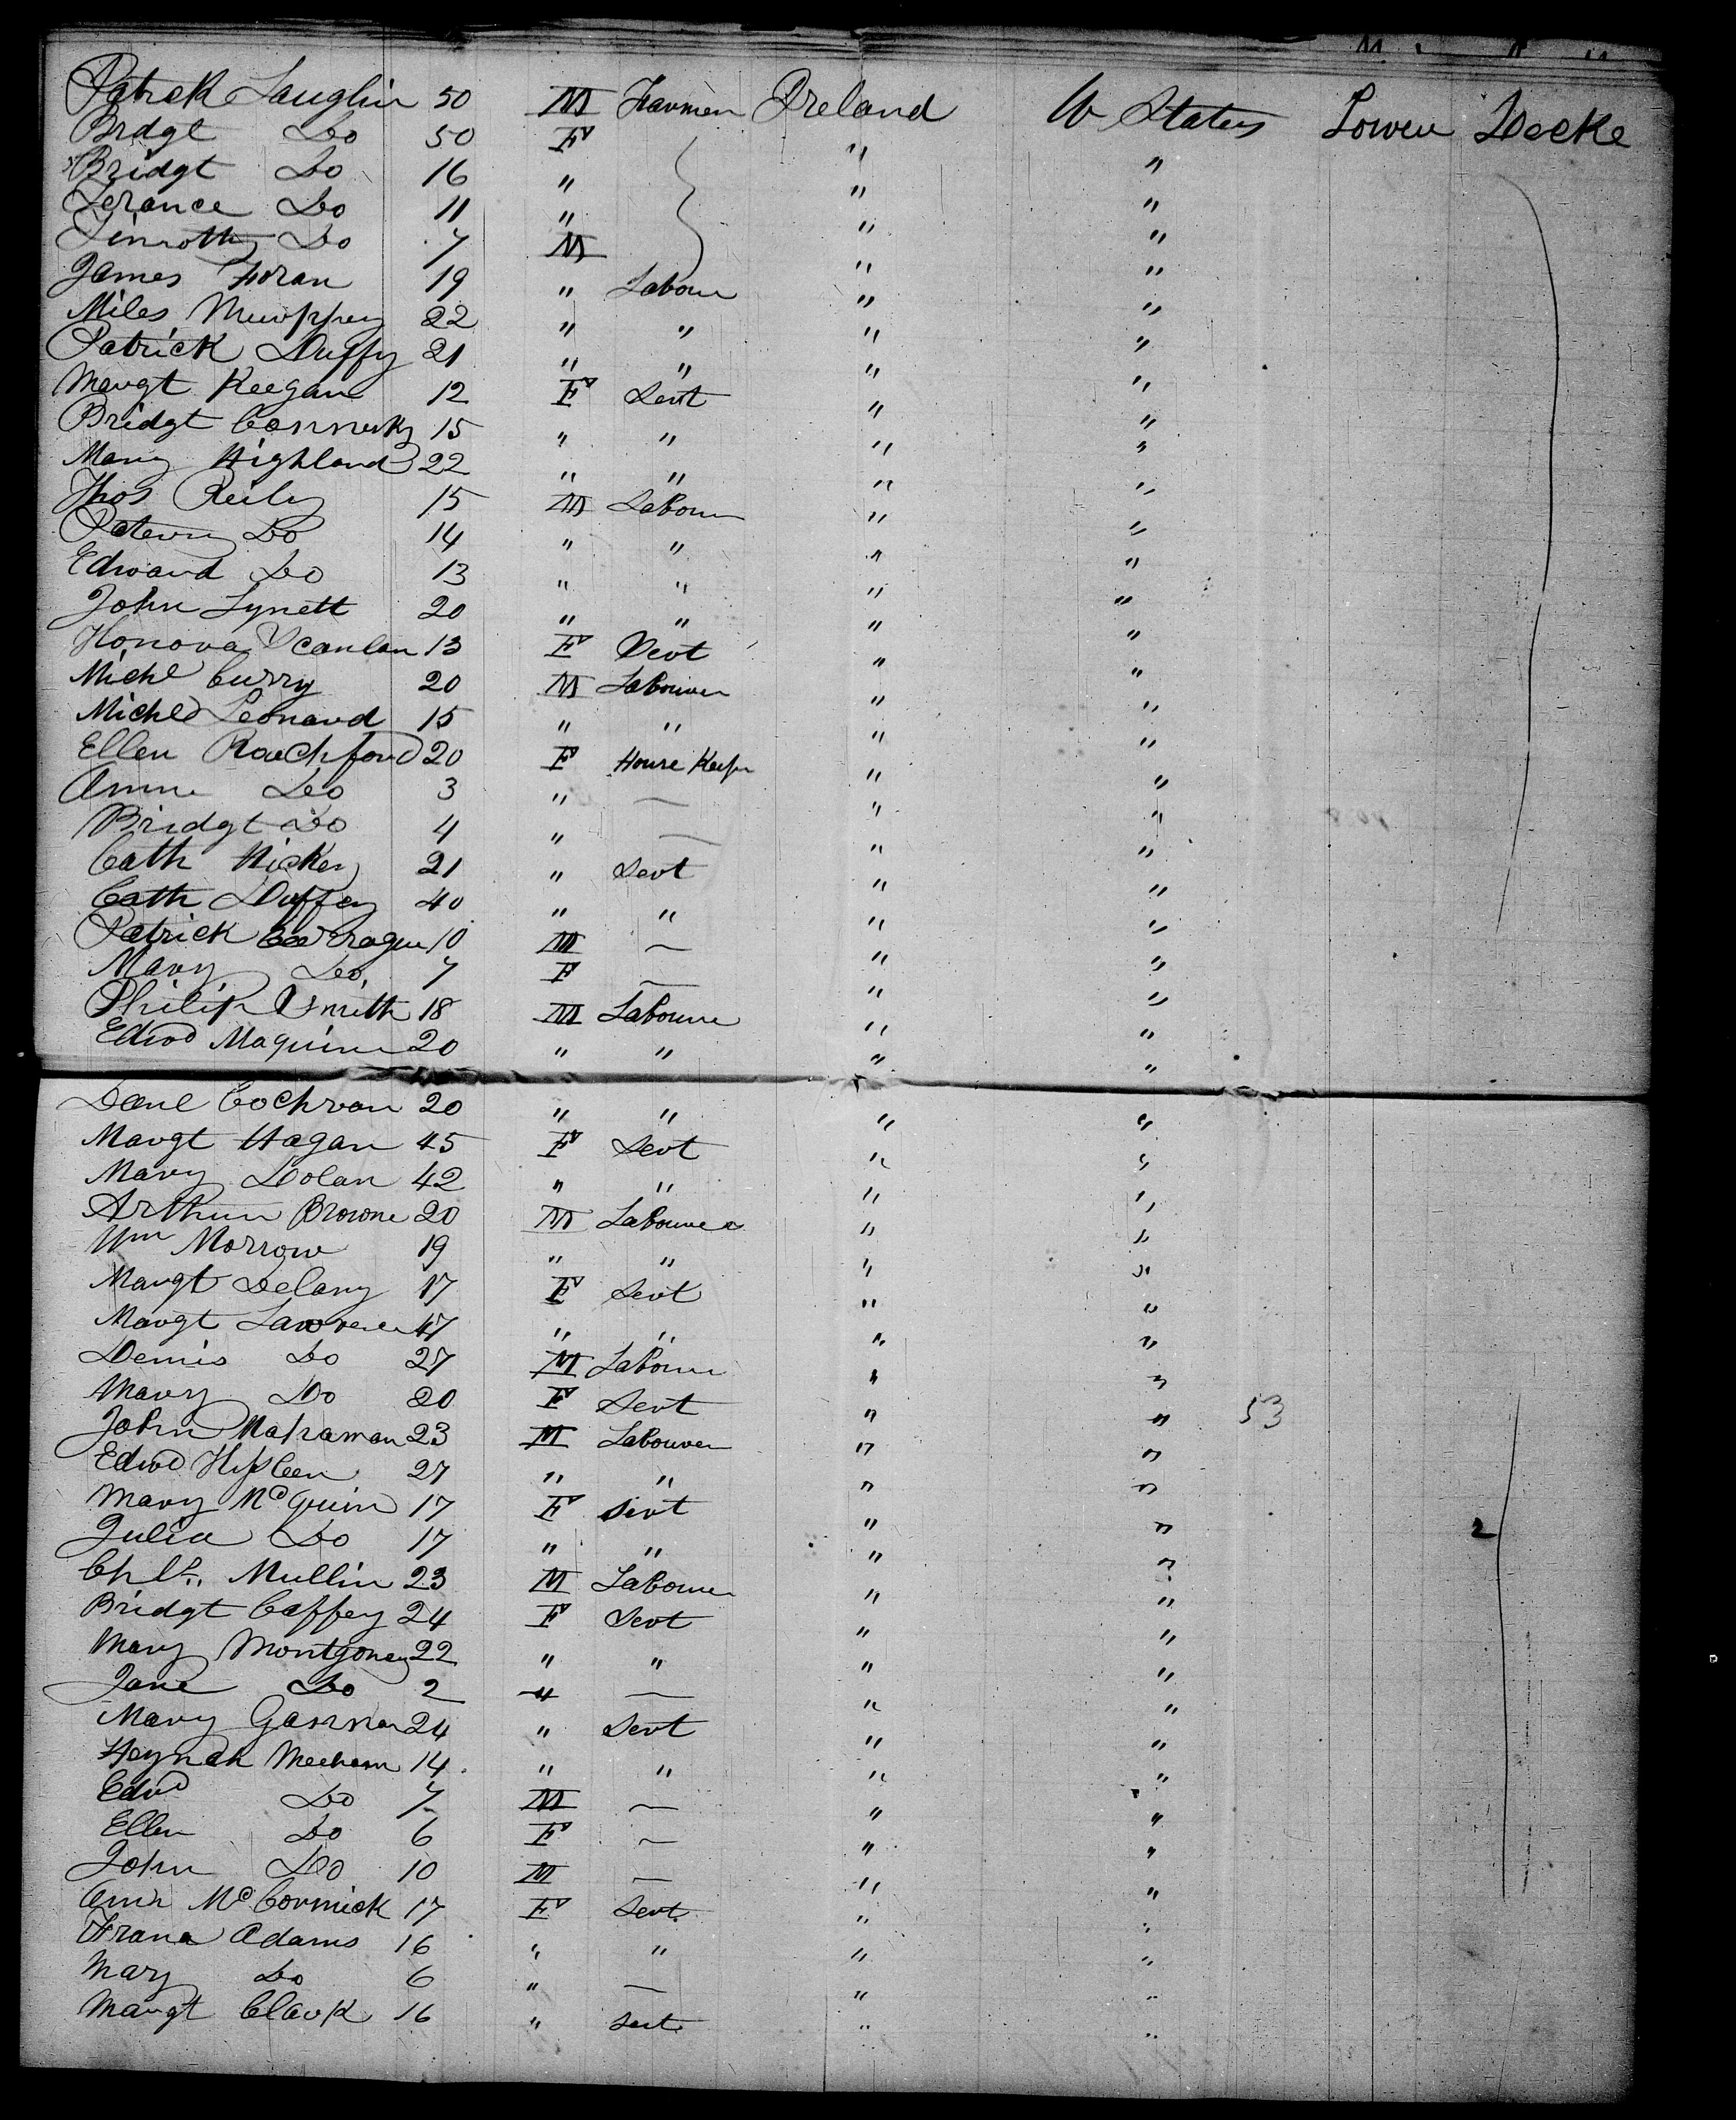 Patrick Laughlin 50 M Farmer Ireland U States Lower Decke
Brdgt Do 50 F " "
Bridgt Do 16 " " "
Terance Do 11 " " "
Timothy Do 7 M " "
James Foran 19 " Labour " "
Miles Murphey 22 " " " "
Patrick Duffy 21 " " " "
Margt Keegan 12 F Servt " "
Bridgt 15 " " " "
Mary Highland 22 " " " "
Thos Reily 15 M Labour " "
Do 14 " " " "
Edward Do 13 " " " "
John Lynett 20 " " " "
Honora Scanlan 13 F Servt " "
Michl Curry 20 M Labourer " "
Michl Leonard 15 " " " "
Ellen Rochford 20 F House Keeper " "
Anne Do 3 " — " "
Bridgt Do 4 " — " "
Cath Hickey 21 " Servt " "
Cath Duffey 40 " " " "
Patrick 10 M — " "
Mary Do 7 F — " "
Philip Smith 18 M Laboure " "
Edwd Maguire 20 " " " "
Danl Cochran 20 " " " "
Margt Hagan 45 F Servt " "
Mary Dolan 42 " " " "
Arthur Browne 20 M Labourer " "
Wm Morrow 19 " " " "
Margt Delany 17 F Servt " "
Margt 47 " " " "
Dennis Do 27 M Labour " "
Mary Do 20 F Servt " " 53
John 23 M Labourer " "
Edwd 27 " " " "
Mary McGuire 17 F Servt " " 2
Julia Do 17 " " " "
Mullin 23 M Labourer " "
Bridgt Caffey 24 F Servt " "
Mary Montgomey 22 " " " "
Jane Do 2 " — " "
Mary Gannon 24 " Servt " "
Meehan 14 " " " "
Edwd Do 7 M — " "
Ellen Do 6 F — " "
John Do 10 M — " "
Ann McCormick 17 F Servt " "
Adams 16 " " " "
Mary Do 6 " — " "
Margt Clark 16 " Servt " "